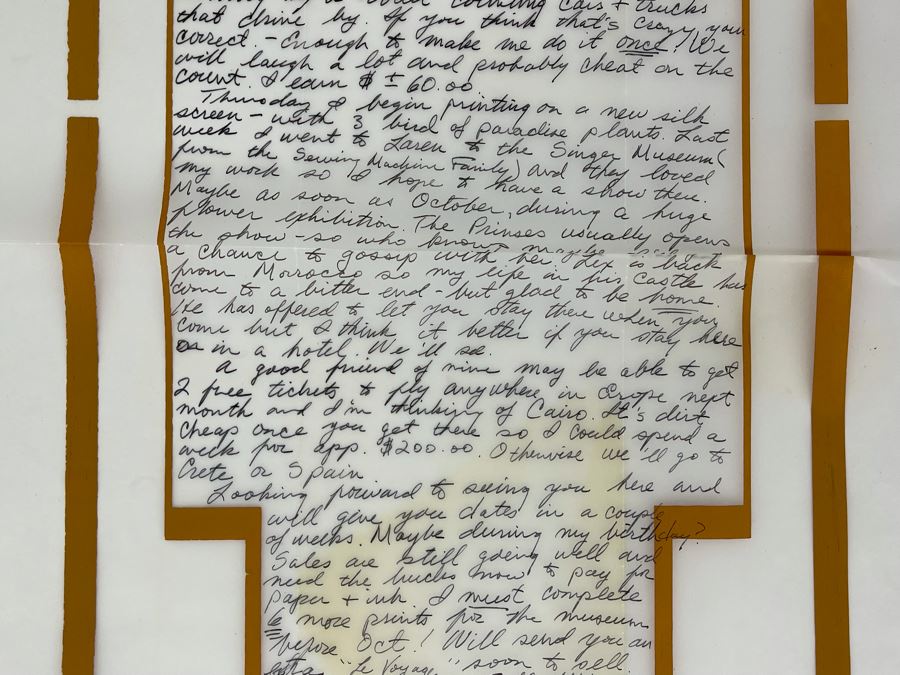 counting cars + trucks
that drive by. If you think that's crazy your
correct. - Enough to make me do it once! We
will laugh a lot and probably cheat on the
count. I earn $ ± 60.00
Thursday I begin printing on a new silk
screen - with 3 bird of paradise plants. Last
week I went to Laren to the Singer Museum (
from the Sewing Machine Family) and they loved
my work so I hope to have a show there.
Maybe as soon as October, during a huge
flower exhibition. The Prinses usually opens
the show - so who knows maybe
a chance to gossip with her. Lex is back
from Morrocco so my life in his castle has
come to a bitter end - but glad to be home.
He has offered to let you stay there when you
come but I think it better if you stay here
or in a hotel. We'll see.
A good friend of mine may be able to get
2 free tickets to fly anywhere in Europe next
month and I'm thinking of Cairo. It's dirt
cheap once you get there so I could spend a
week for app. $200.00. Otherwise we'll go to
Crete or Spain
Looking forward to seeing you here and
will give you dates in a couple
of weeks. Maybe during my birthday?
Sales are still going well and
need the bucks now to pay for
paper + ink. I must complete
6 more prints for the museum
before Oct.! Will send you an
extra "Le Voyage" soon to sell.